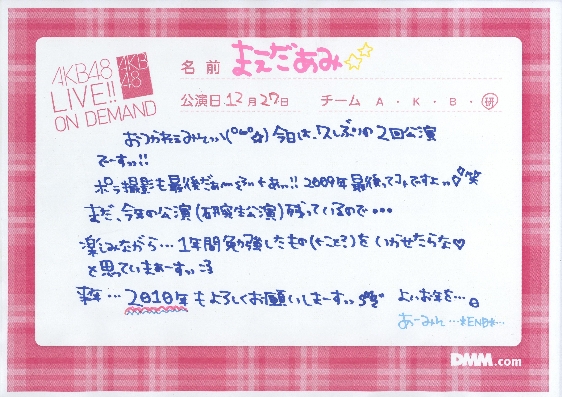 AKB48
LIVE!!
ON DEMAND
AKB
48
名前 まえだあみ☆☆
公演日 12月27日 チーム A・K・B・研
おつかれぇみてぃヽ(°ω°☆)今日は、久しぶりの2回公演
でーすッ!!
ポラ撮影も最後だぁ〜 2009年最後、ってコトですよッ 笑
まだ、今年の公演(研究生公演)残っているので・・・
楽しみながら…1年間勉強したもの(+こと?)をいかせたらな♡
と思っていまぁーすッ :3
来年…2010年もよろしくお願いしまーすッ よいお年を…。
あーみん…*END*…
DMM.com